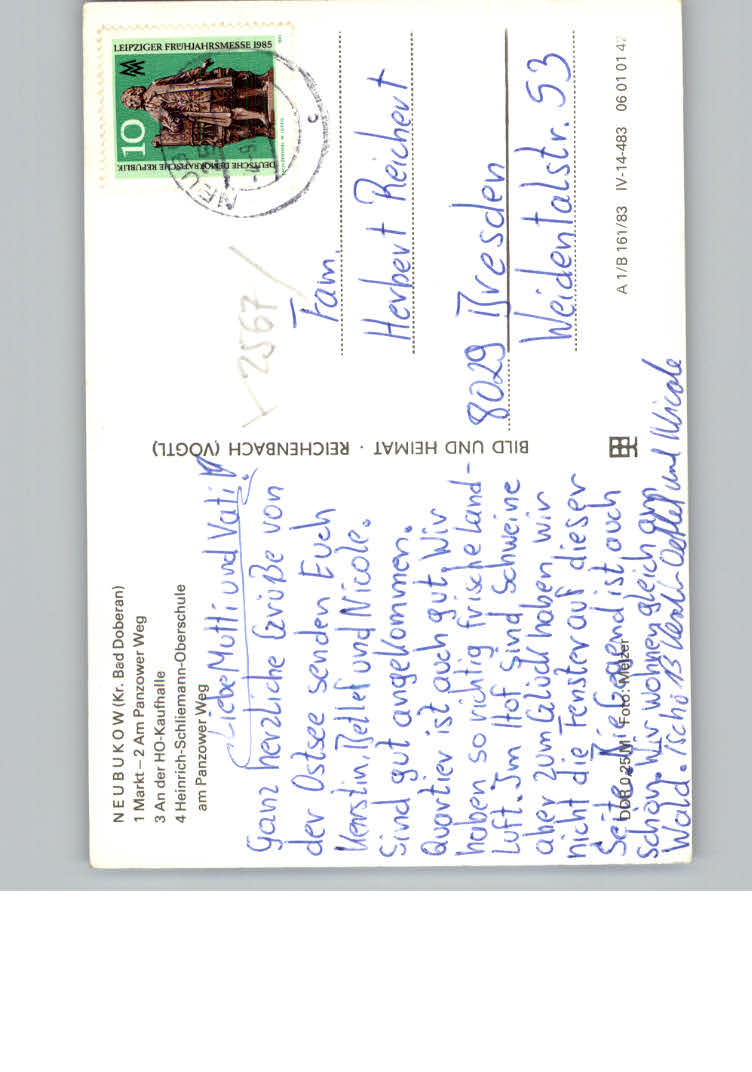 NEUBUKOW (Kr. Bad Doberan)
1 Markt – 2 Am Panzower Weg
3 An der HO-Kaufhalle
4 Heinrich-Schliemann-Oberschule
am Panzower Weg
Liebe Mutti und Vati!
Ganz herzliche Grüße von
der Ostsee senden Euch
Kerstin, Detlef und Nicole.
Sind gut angekommen.
Quartier ist auch gut. Wir
haben so richtig frische Land-
luft. Im Hof sind Schweine
aber zum Glück haben wir
nicht die Fenster auf dieser
Seite. Die Gegend ist auch
schön. Wir wohnen gleich am
Wald. Tschüß Detlef und Nicole
DDR 0,25 M Foto: Melzer
BILD UND HEIMAT · REICHENBACH (VOGTL)
LEIPZIGER FRÜHJAHRSMESSE 1985
10
DEUTSCHE DEMOKRATISCHE REPUBLIK
NEU
c
2567
Fam.
Herbert Reichert
8029 Dresden
Weidentalstr. 53
A 1/B 161/83 IV-14-483 06 01 01 42